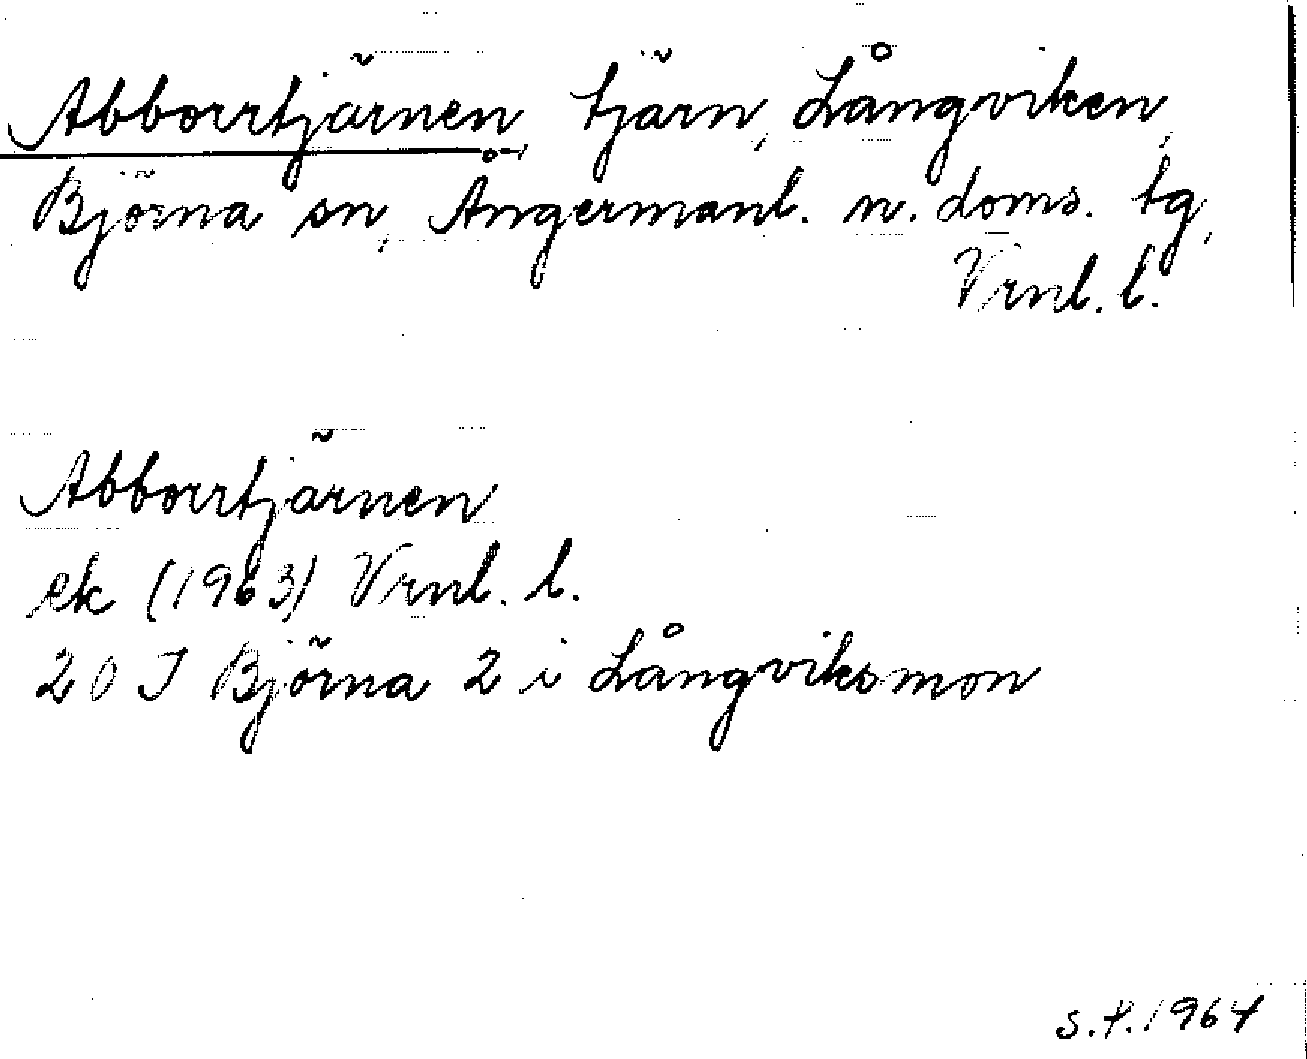 Abborrtjärnen, tjärn, Långviken,
Björna sn, Ångermanl. n. doms. tg,
Vrnl. l.
Abborrtjärnen
ek (1963) Vrnl. l.
20 J Björna 2 i Långviksmon
S.F. 1964